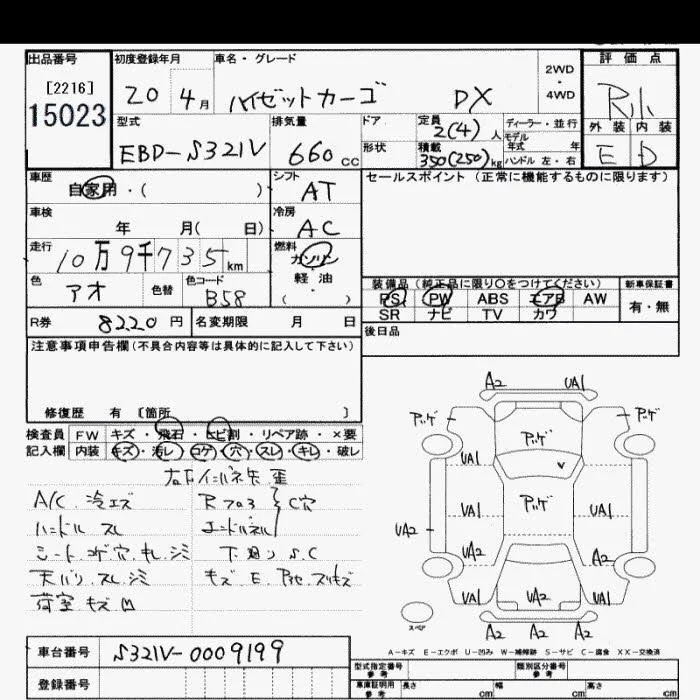 出品番号 初度登録年月 車名・グレード 2WD・4WD 評価点
[2216]
15023
20 4月 ハイゼットカーゴ DX
型式 排気量 ドア 定員 2(4)人 ディーラー・並行 外装 内装
モデル年式 年
EBD-S321V 660cc 形状 積載 350(250)kg ハンドル 左・右 E D
車歴 シフト セールスポイント(正常に機能するものに限ります)
自家用・( ) AT
車検 冷房
年 月( 日) AC
走行 燃料
10万9千735km ガソリン
色 色替 色コード 軽油
アオ B58 ( )
装備品(純正品に限り○をつけてください) 新車保証書
PS PW ABS エアB AW 有・無
SR ナビ TV カワ
R券 8220円 名変期限 月 日 後日品
注意事項申告欄(不具合内容等は具体的に記入して下さい)
修復歴 有 〔箇所 〕
検査員 FW キズ・飛石・ヒビ割・リペア跡・×要
記入欄 内装 キズ・汚レ・コゲ・穴・スレ・キレ・破レ
A/C 冷エズ
ハンドル スレ
シート コゲ 穴 キレ シミ
天バリ スレ シミ
荷室 キズ凹
C穴
下廻り S.C
A2 UA1
UA1
UA1 UA1
UA2
UA2 A2
UA1 UA2 UA1
A2 A2 A2
スペア
A-キズ E-エクボ U-凹み W-補修跡 S-サビ C-腐食 XX-交換済
車台番号 S321V-0009199
登録番号
型式指定番号 参考 類別区分番号 参考
車庫証明用 参考 長さ cm 幅 cm 高さ cm